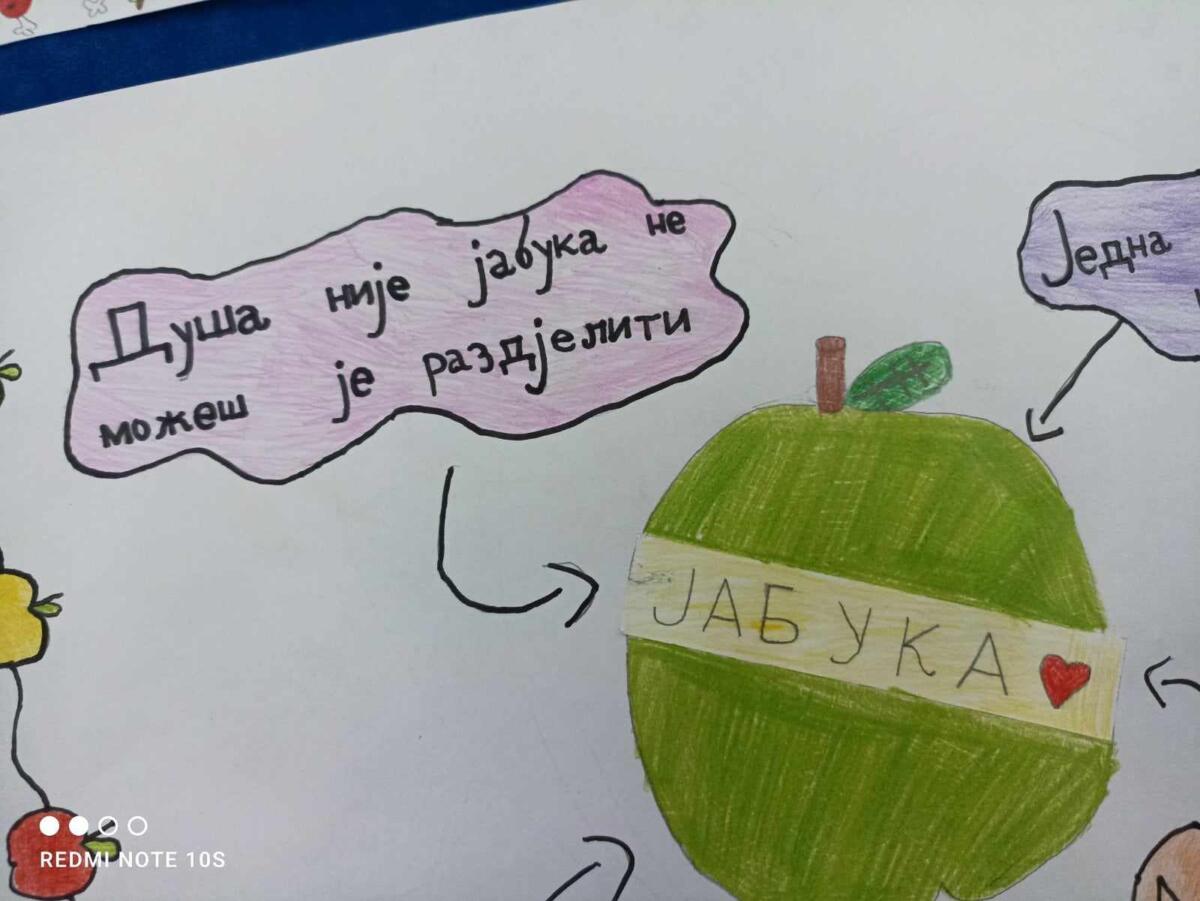 Душа није јабука не
можеш је раздјелити
Једна
ЈАБУКА
REDMI NOTE 10S